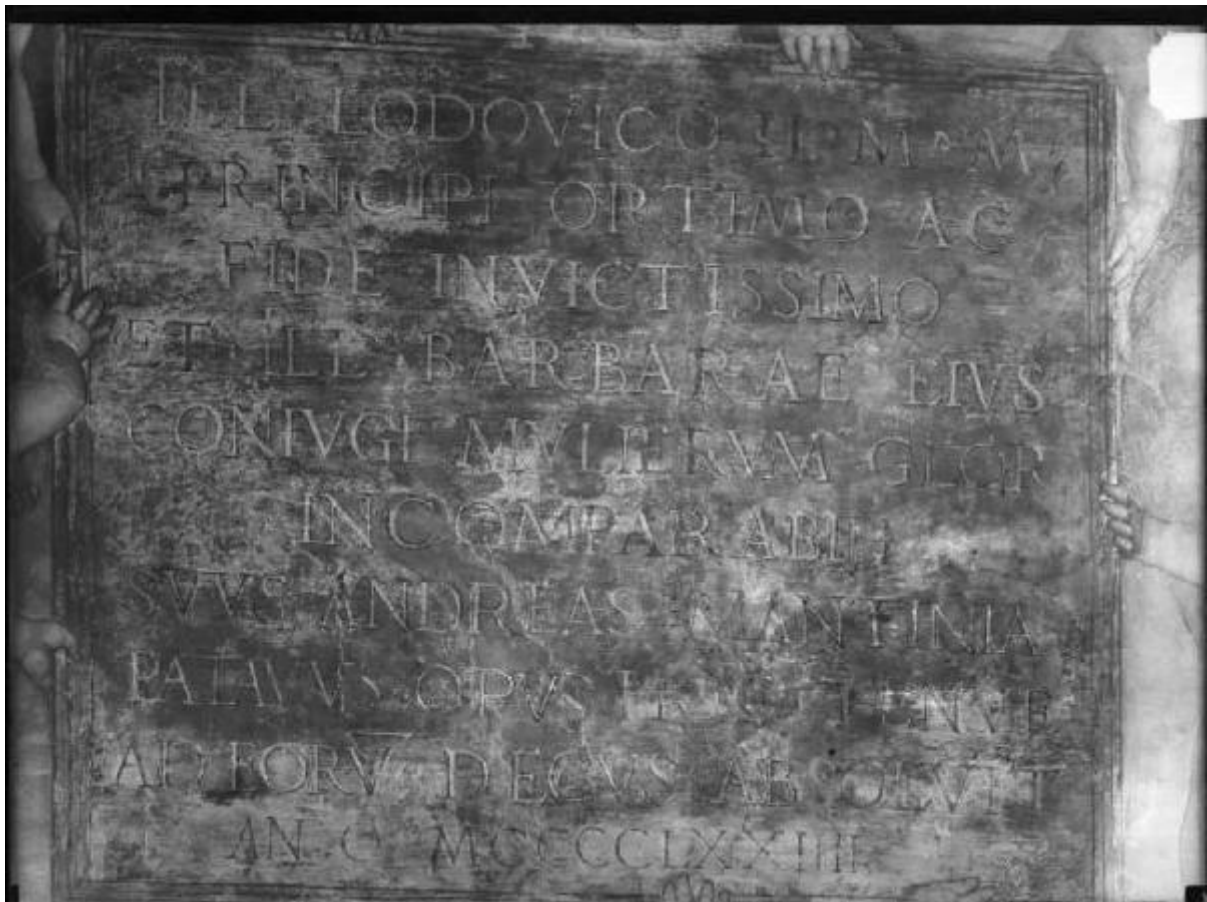 ILL LODOVICO II M M
PRINCIPI OPTIMO AC
FIDE INVICTISSIMO
ET ILL BARBARAE EIVS
CONIVGI MVLIERVM GLOR
INCOMPARABILI
SVVS ANDREAS MANTINIA
PATAVVS OPVS HOC TENVE
AD EORV DECVS ABSOLVIT
ANNO MCCCCLXXIIII